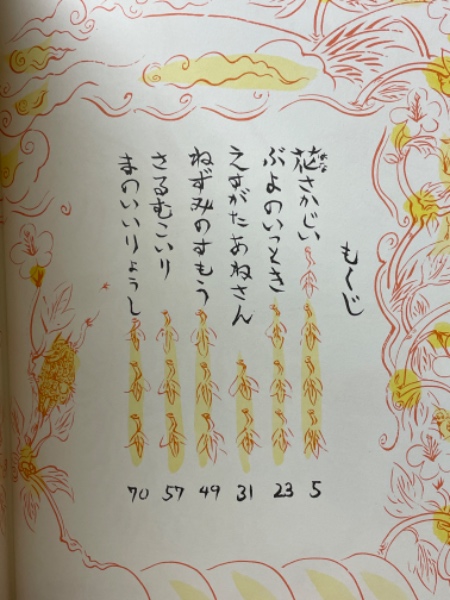 もくじ
花さかじい 5
はな
ぶよのいっとき 23
えすがたあねさん 31
ねずみのすもう 49
さるむこいり 57
まのいいりょうし 70